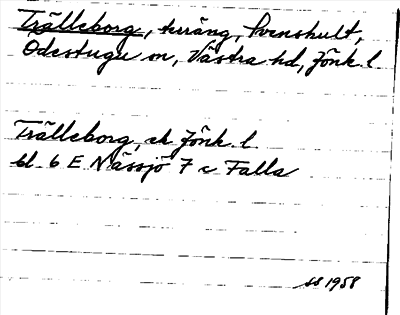 Trälleborg, terräng, Svenshult,
Ödestugu sn, Västra hd, Jönk. l.
Trälleborg, ek Jönk. l.
bl. 6 E Nässjö 7 c Falla
SS 1958